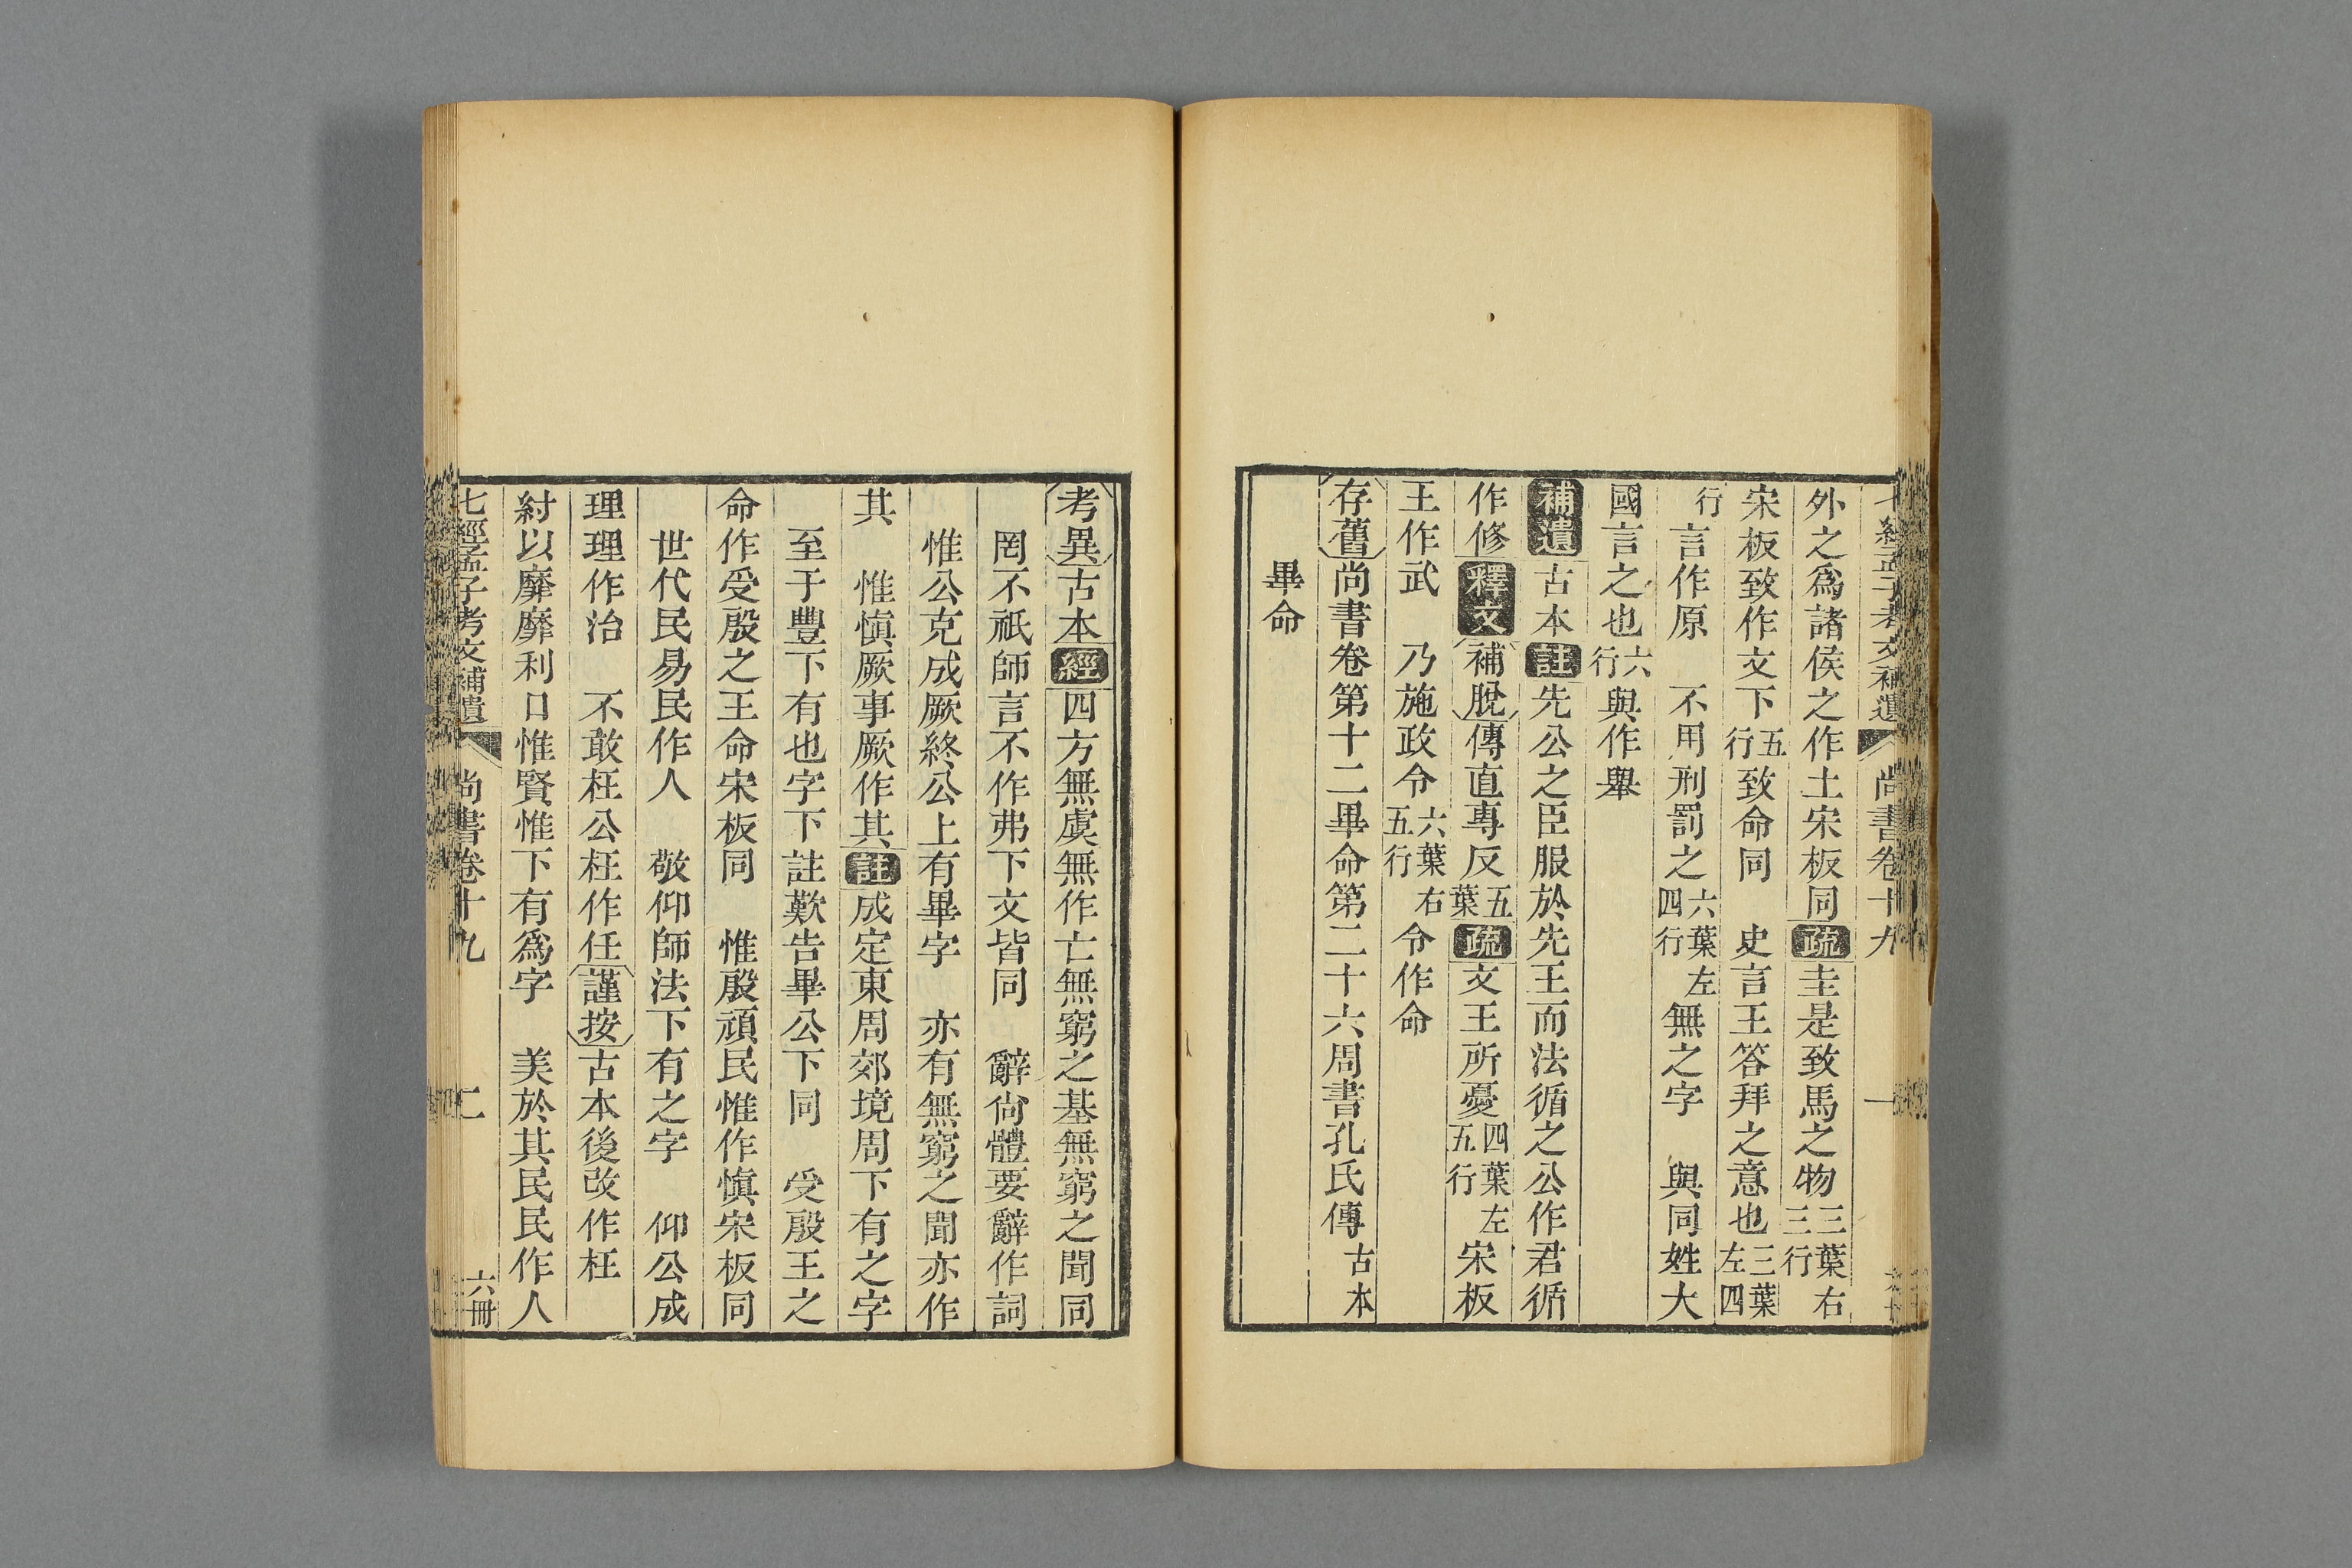 七經孟子考文補遺 尚書卷十九 一
外之爲諸侯之作土宋板同疏圭是致馬之物三葉右三行
宋板致作文下五行致命同 史言王答拜之意也三葉左四
行言作原 不用刑罰之六葉左四行無之字 與同姓大
國言之也六行與作舉
補遺古本註先公之臣服於先王而法循之公作君循
作修釋文補脫傳直專反五葉疏文王所憂四葉左五行宋板
王作武 乃施政令六葉右五行令作命
存舊尚書卷第十二畢命第二十六周書孔氏傳古本
畢命
考異古本經四方無虞無作亡無窮之基無窮之聞同
罔不祗師言不作弗下文皆同 辭尙體要辭作詞
惟公克成厥終公上有畢字 亦有無窮之聞亦作
其 惟愼厥事厥作其註成定東周郊境周下有之字
至于豐下有也字下註歎告畢公下同 受殷王之
命作受殷之王命宋板同 惟殷頑民惟作愼宋板同
世代民易民作人 敬仰師法下有之字 仰公成
理理作治 不敢枉公枉作任謹按古本後改作枉
紂以靡靡利口惟賢惟下有爲字 美於其民民作人
七經孟子考文補遺 尚書卷十九 二 六冊